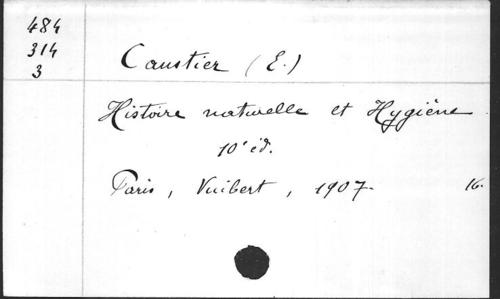 484
314
3
Caustier (E.)
Histoire naturelle et Hygiène
10e éd.
Paris, Vuibert, 1907. 16.